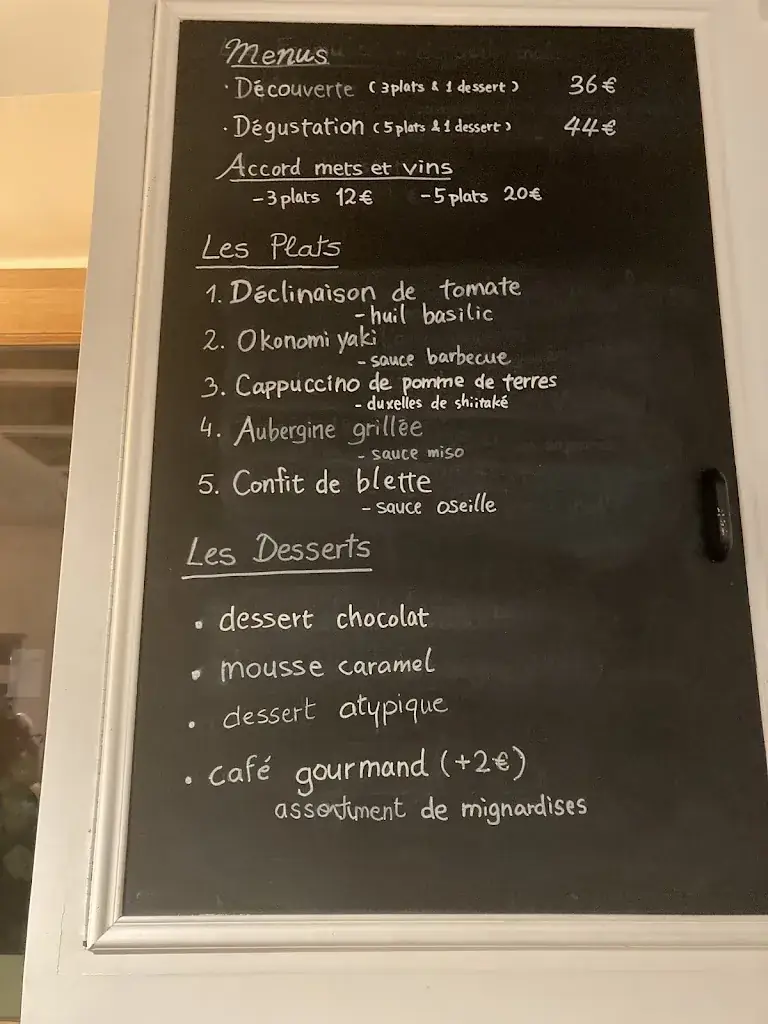 Menus
· Découverte (3 plats & 1 dessert) 36€
· Dégustation (5 plats & 1 dessert) 44€
Accord mets et vins
- 3 plats 12€ - 5 plats 20€
Les Plats
1. Déclinaison de tomate
- huil basilic
2. Okonomi yaki
- sauce barbecue
3. Cappuccino de pomme de terres
- duxelles de shiitaké
4. Aubergine grillée
- sauce miso
5. Confit de blette
- sauce oseille
Les Desserts
• dessert chocolat
• mousse caramel
• dessert atypique
• café gourmand (+2€)
assortiment de mignardises